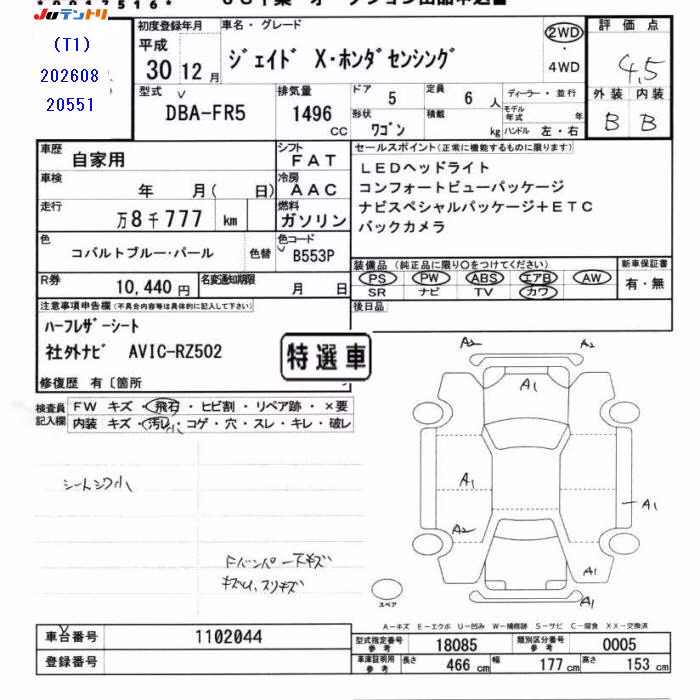 JUテントリ
(T1)
202608
20551
初度登録年月
平成
30 12 月
車名・グレード
ジェイド X・ホンダセンシング
2WD
・
4WD
評価点
4.5
外装 内装
B B
型式
DBA-FR5
排気量
1496
CC
ドア
5
定員
6 人
形状
ワゴン
積載
kg
ディーラー・並行
モデル年式 年
ハンドル 左・右
車歴
自家用
シフト
FAT
車検
年 月( 日)
冷房
AAC
走行
万8千777 km
燃料
ガソリン
色
コバルトブルー・パール
色替
色コード
B553P
R券
10,440 円
名変通知期限
月 日
セールスポイント(正常に機能するものに限ります)
LEDヘッドライト
コンフォートビューパッケージ
ナビスペシャルパッケージ+ETC
バックカメラ
装備品(純正品に限り○をつけてください)
PS PW ABS エアB AW
SR ナビ TV カワ
新車保証書
有・無
後日品
注意事項申告欄(不具合内容等は具体的に記入して下さい)
ハーフレザーシート
社外ナビ AVIC-RZ502
修復歴 有〔箇所
特選車
検査員
記入欄
FW キズ・飛石・ヒビ割・リペア跡・×要
内装 キズ・汚レ・コゲ・穴・スレ・キレ・破レ
シートシワ小
Fバンパー下キズ
A2
A2
A1
A1
A1
A2
A1
A1
スペア
A-キズ E-エクボ U-凹み W-補修跡 S-サビ C-腐食 XX-交換済
車台番号
1102044
登録番号
型式指定番号
参考
18085
類別区分番号
参考
0005
車庫証明用
参考
長さ
466 cm
幅
177 cm
高さ
153 cm